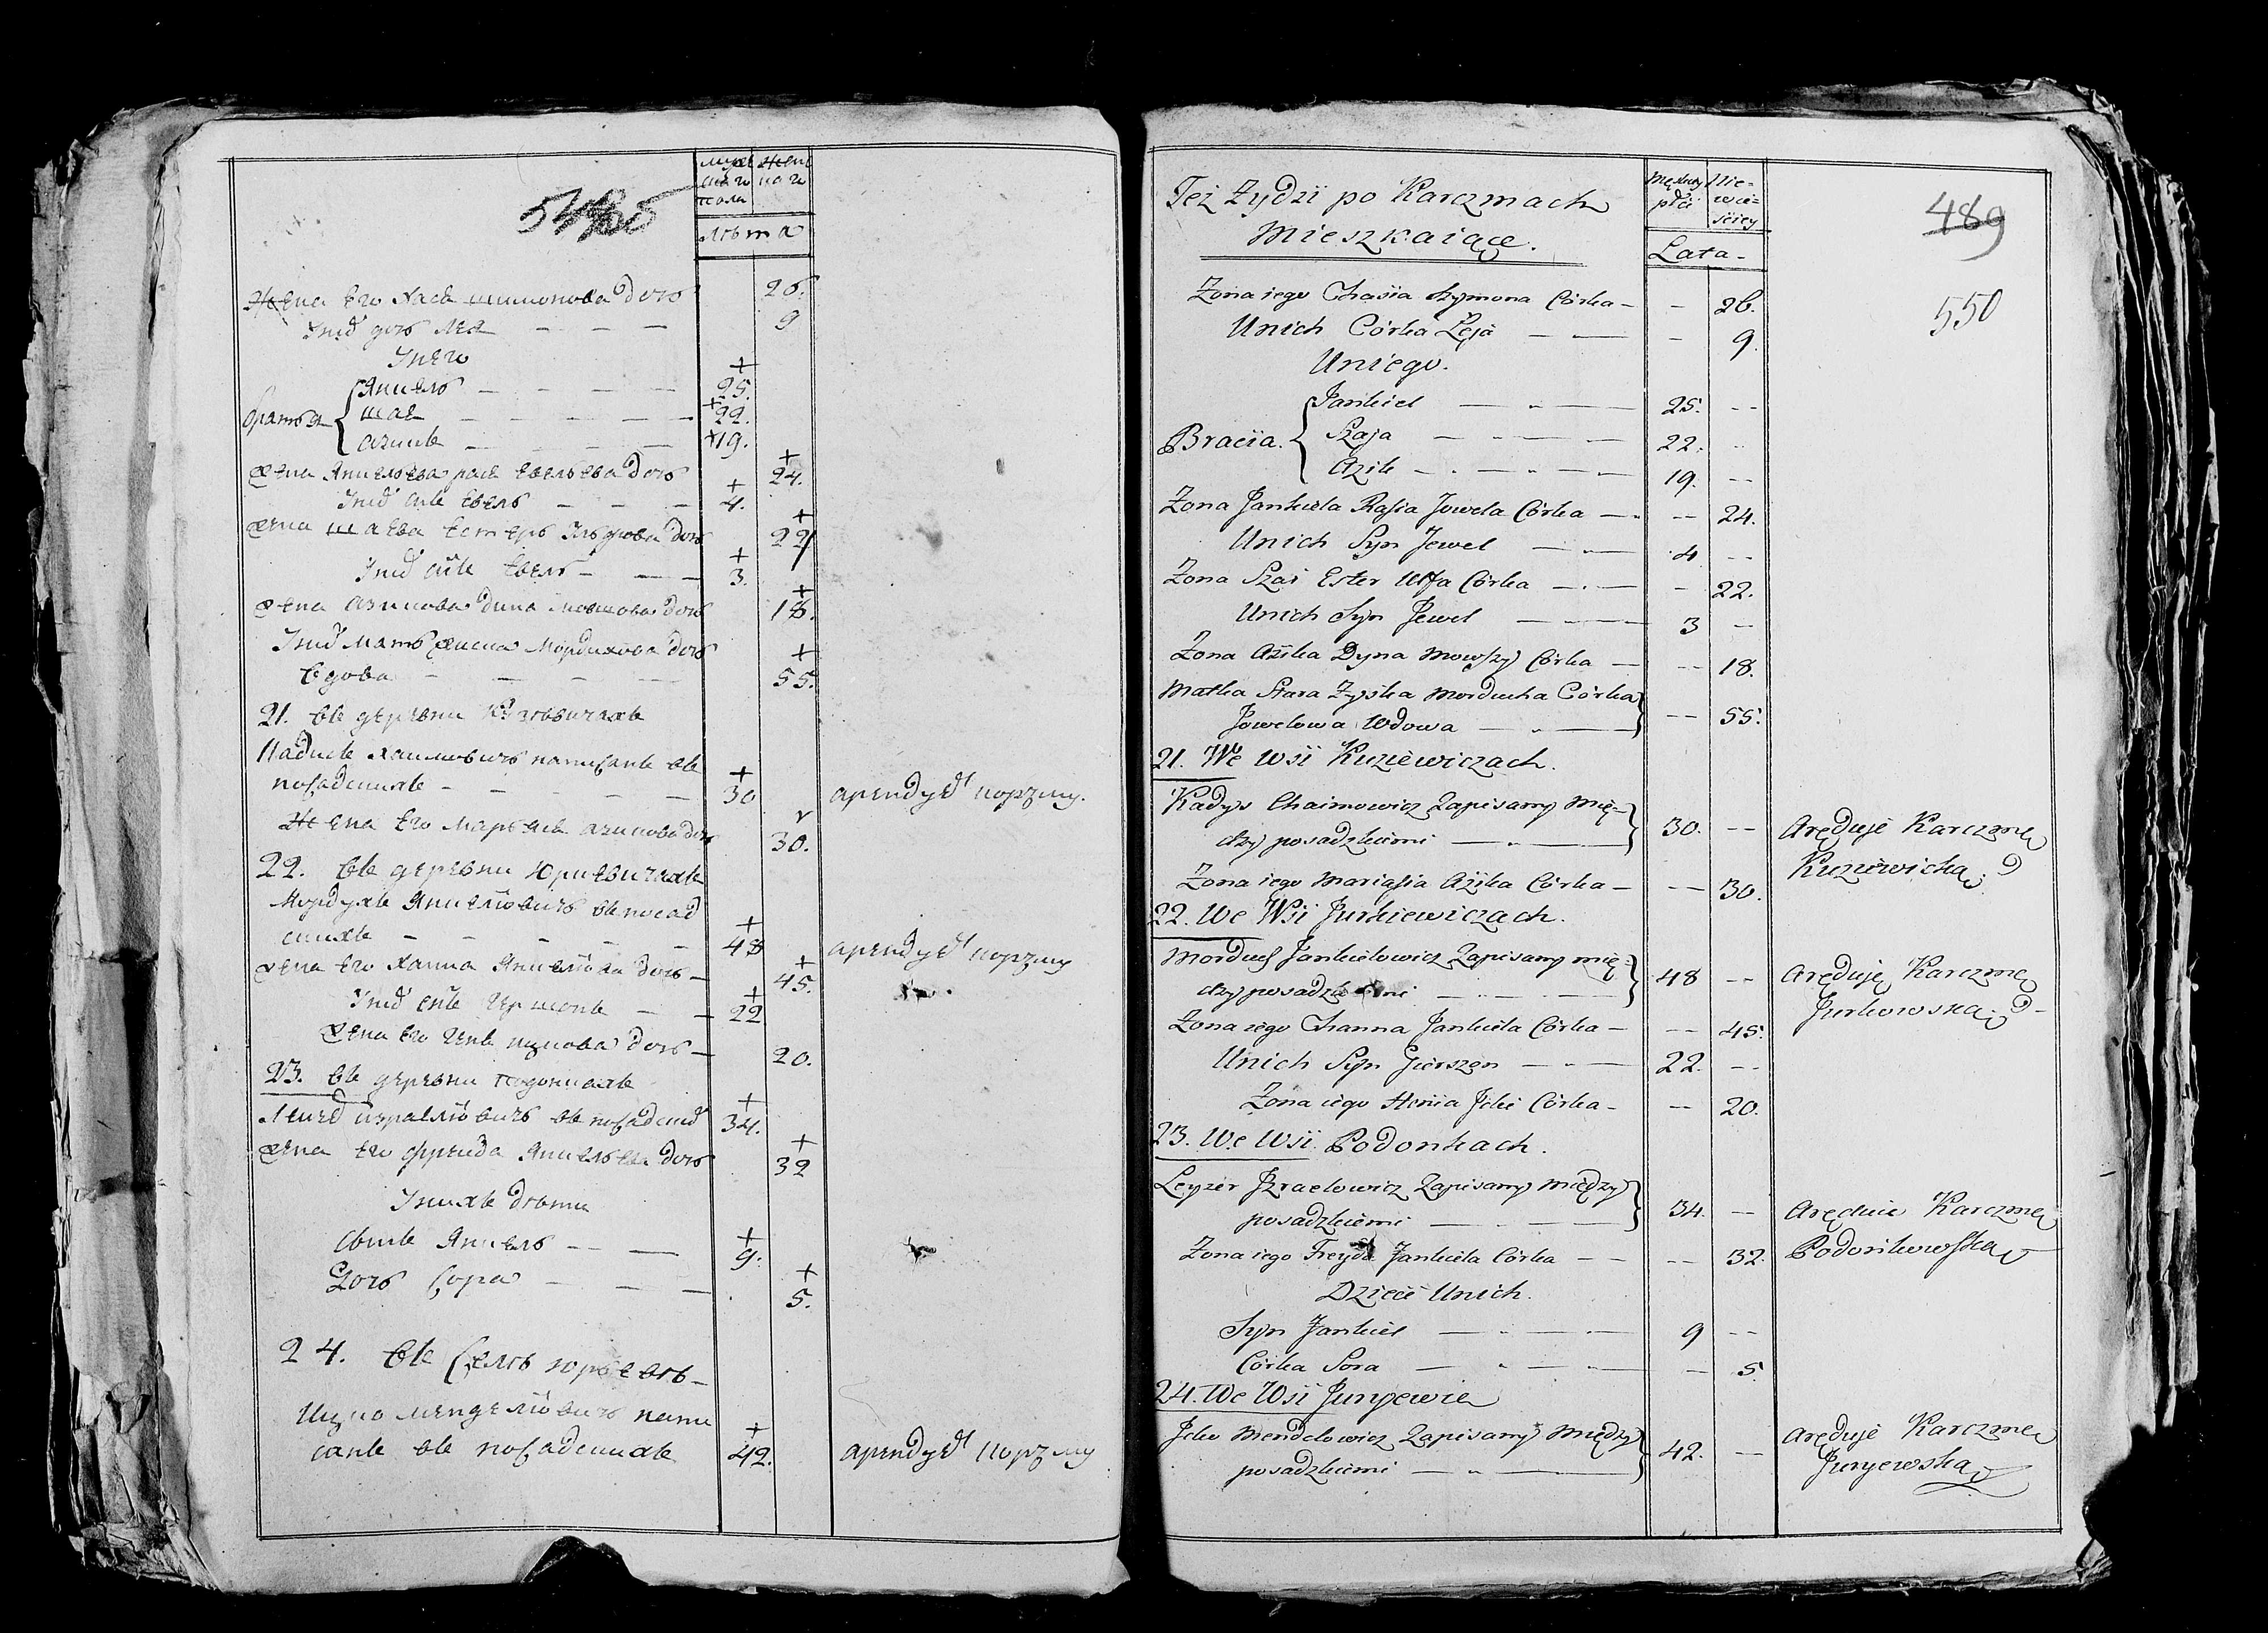 муже
ска го
пола
жен
ска го
лѣта
Жена Его Хася шимонова дочь 26.
Унид дочь Лея — — — 9
Унего
Янкель — — — 25.
братья шая — — — 22.
азикъ — — — 19.
жена Янкелева рася евелева дочь 24.
Унид сынъ евель — — — 4.
жена шаева естеръ дочь 22
Унид сынъ евель — — — 3.
жена азикова дина мовшова дочь 18.
Унид мать жиска Мордихова дочь
вдова — — — 55.
21. въ деревни Кузевичахъ
Кадисъ хаимовичъ написанъ въ
посадскихъ — — — 30 арендуетъ корчму.
Жена Его марьяся азикова дочь 30.
22. въ деревни Юркевичахъ
Мордухъ Янкелiовичъ въ посад
скихъ — — — 48 арендуетъ корчму
жена Его Ханна Янкелiова дочь — 45.
Унид сынъ Гиршонъ — — 22
жена Его Геня ицкова дочь — 20.
23. въ деревни подонкахъ
Лейзеръ израелiовичъ въ посадски 34.
жена Его фрейда Янкелева дочь 32
Унихъ дѣти
Сынъ Янкель — — 9.
Дочь Сора — — — 5.
24. въ Селѣ юрьевѣ —
Ицко менделiовичъ напи
санъ въ посадскихъ 42. арендуетъ корчму
Też Żydzi po Karczmach
Mieszkaiące.
Męskiey
płci
Nie=
wie=
ściey
Lata -
489
550
Żona iego Chasia Szymona Córka — - 26.
Unich Córka Leja — — - 9.
Uniego.
Jankiel — „ — 25. --
Bracia. Szaja — — 22. --
Azik — — 19. --
Żona Jankiela Rasia Jowela Córka — -- 24.
Unich Syn Jewel — — 4 --
Żona Szai Ester Ulfa Córka — — - 22.
Unich Syn Jewel — — 3 --
Żona Azika Dyna Mowszy Córka — -- 18.
Matka Stara Żyska Morducha Córka
Jowelowa Wdowa — „ — -- 55.
21. We Wsi Kuziewiczach.
Kadys Chaimowicz Zapisany Mię=
dzy posadzkiemi — „ — 30. -- Aręduje Karczmę
Kuziewicką.
Żona iego Mariasia Azika Córka — -- 30.
22. We Wsi Jurkiewiczach.
Morduch Jankielowicz Zapisany mię=
dzy posadzkiemi — — 48 -- Aręduję Karczmę
Jurkowską.
Żona iego Channa Jankiela Córka — -- 45.
Unich Syn Gierszon — „ — 22. --
Żona iego Henia Icki Córka — -- 20.
23. We Wsi Podonkach.
Leyzer Izraelowicz Zapisany między
posadzkiemi — — 34. -- Aręduie Karczmę
Podonkowską
Żona iego Freyda Jankiela Córka — — -- 32.
Dzieci Unich.
Syn Jankiel — „ — 9 --
Córka Sora — „ — - 5.
24. We Wsi Juryewie
Icko Mendelowicz Zapisany Między
posadzkiemi — „ — 42. -- Aręduje Karczmę
Juryewską